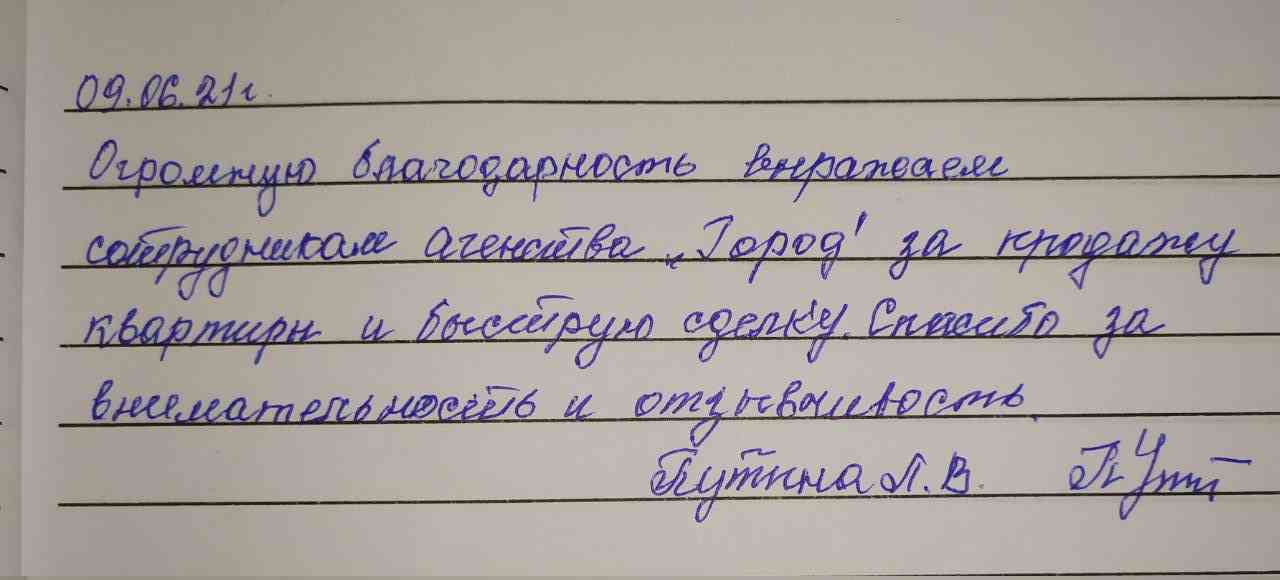 09.06.21г.
Огромную благодарность выражаем
сотрудникам агенства „Город" за продажу
квартиры и быструю сделку. Спасибо за
внимательность и отзывчивость.
Путина Л.В.